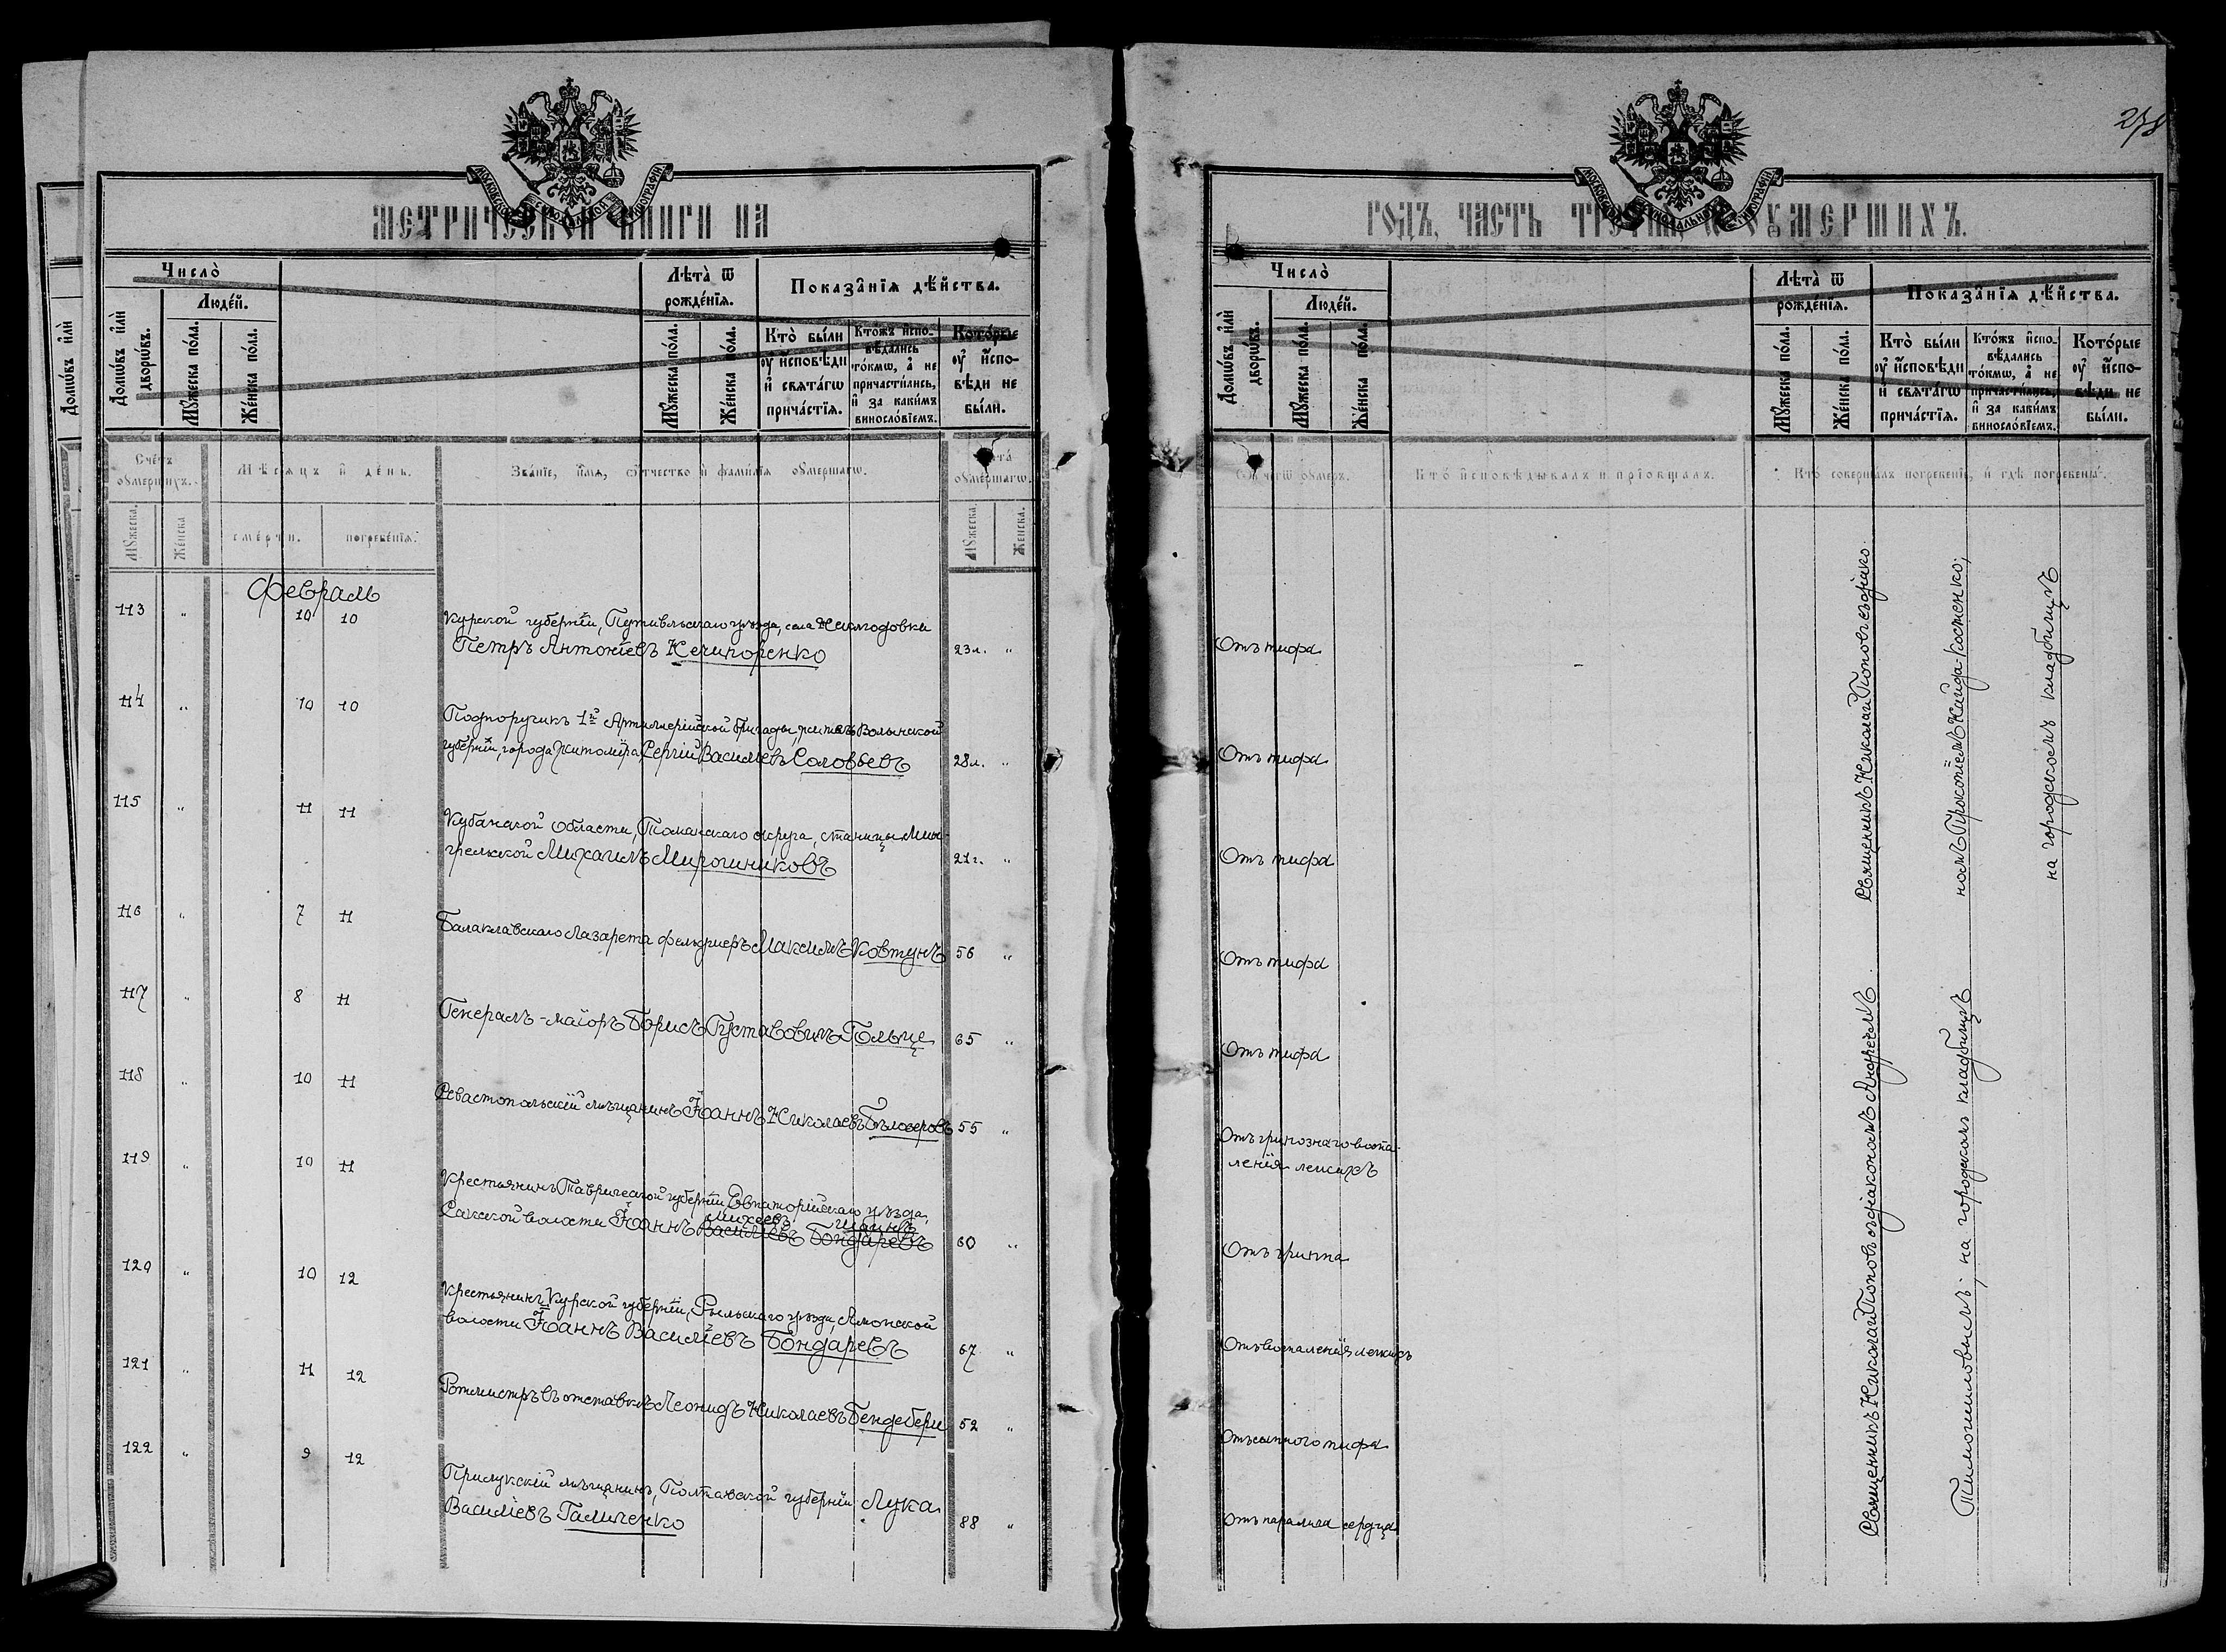 МЕТРИЧЕСКОЙ КНИГИ НА
Число̀
Домѡ́въ и҆лѝ дворѡ́въ.
Люде́й.
Мꙋ́жеска по́ла.
Же́нска по́ла.
Лѣ́та ѿ рожде́нїѧ.
Мꙋ́жеска по́ла.
Же́нска по́ла.
Показа̑нїѧ дѣ́йства.
Кто̀ бы́ли
ᲂу҆ и҆сповѣ́ди
и҆ свѧта́гѡ
прича́стїѧ.
Кто́жъ и҆спо-
вѣ́дались
то́кмѡ, а҆ не
причасти́лись,
и҆ за каки́мъ
винословїемъ.
Кото́рые
ᲂу҆ и҆спо-
вѣ́ди не
бы́ли.
Счётъ ᲂумершихъ.
Мѣ́сѧцъ и҆ де́нь.
Зва́нїе, и҆́мѧ, ѻ҆́тчество и҆ фами́лїѧ ᲂуме́ршагѡ.
Лѣта̀ ᲂуме́ршагѡ.
Мꙋ́жеска.
Же́нска
сме́рти.
погребе́нїѧ.
Мꙋ́жеска.
Же́нска.
Февраль
113 " 10 10 Курской губерніи, Путивльскаго уѣзда, села
Петръ Антоніевъ Кечипоренко 23 л. "
114 " 10 10 Подпоручикъ 1й Артиллерійской бригады, житель Волынской
губерніи, города Житоміра, Сергій Василіевъ Соловьевъ 28 л. "
115 " 11 11 Кубанской области, Таманскаго округа, станицы Мин-
грельской Михаилъ Мирошниковъ 21 г. "
116 " 7 11 Балаклавскаго лазарета фельдшеръ Максимъ Ковтунъ 56 "
117 " 8 11 Генералъ-маіоръ Борисъ Густавовичъ Гольце 65 "
118 " 10 11 Севастопольскій мѣщанинъ Іоаннъ Николаевъ Бѣлозеровъ 55 "
119 " 10 11 Крестьянинъ Таврической губерніи, Евпаторійскаго уѣзда,
Михеевъ
Сакской волости Іоаннъ Василіевъ Бондаревъ 60 "
120 " 10 12 Крестьянинъ Курской губерніи, Рыльскаго уѣзда, Амонской
волости Іоаннъ Василіевъ Бондаревъ 67 "
121 " 11 12 Ротмистръ въ отставкѣ Леонидъ Николаевъ Бендебери 52 "
122 " 9 12 Прилукскій мѣщанинъ, Полтавской губерніи Лука
Василіевъ Галиченко 88 "
278
ГОДЪ, ЧАСТЬ ТРЕТЇѦ, Ѡ ОУМЕРШИХЪ.
Число̀
Домѡ́въ и҆лѝ дворѡ́въ.
Люде́й.
Мꙋ́жеска по́ла.
Же́нска по́ла.
Лѣ́та ѿ рожде́нїѧ.
Мꙋ́жеска по́ла.
Же́нска по́ла.
Показа̑нїѧ дѣ́йства.
Кто̀ бы́ли
ᲂу҆ и҆сповѣ́ди
и҆ свѧта́гѡ
прича́стїѧ.
Кто́жъ и҆спо-
вѣ́дались
то́кмѡ, а҆ не
причасти́лись,
и҆ за каки́мъ
винословїемъ.
Кото́рые
ᲂу҆ и҆спо-
вѣ́ди не
бы́ли.
Ѿ чегѡ̀ ᲂу́меръ.
Кто̀ и҆сповѣ́дывалъ и҆ прїѡбща́лъ.
Кто̀ соверша́лъ погребе́нїе, и҆ гдѣ̀ погребены̀.
Отъ тифа
Отъ тифа
Отъ тифа
Отъ тифа
Отъ тифа
Отъ грипознаго воспа-
ленія легкихъ
Отъ гриппа
Отъ воспаленія легкихъ
Отъ сыпного тифа
Отъ паралича сердца
Священникъ Николай Поповъ съ діако-
номъ Прокопіемъ Кайда-Костенко;
на городскомъ кладбищѣ
Священникъ Николай Поповъ съ діакономъ Андреемъ
Тимошиловымъ; на городскомъ кладбищѣ